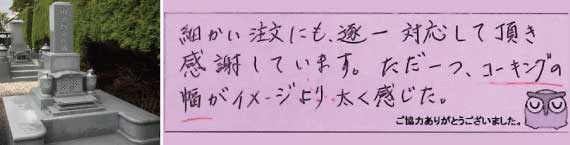 細かい注文にも、逐一対応して頂き
感謝しています。ただ一つ、コーキングの
幅がイメージより太く感じた。
ご協力ありがとうございました。